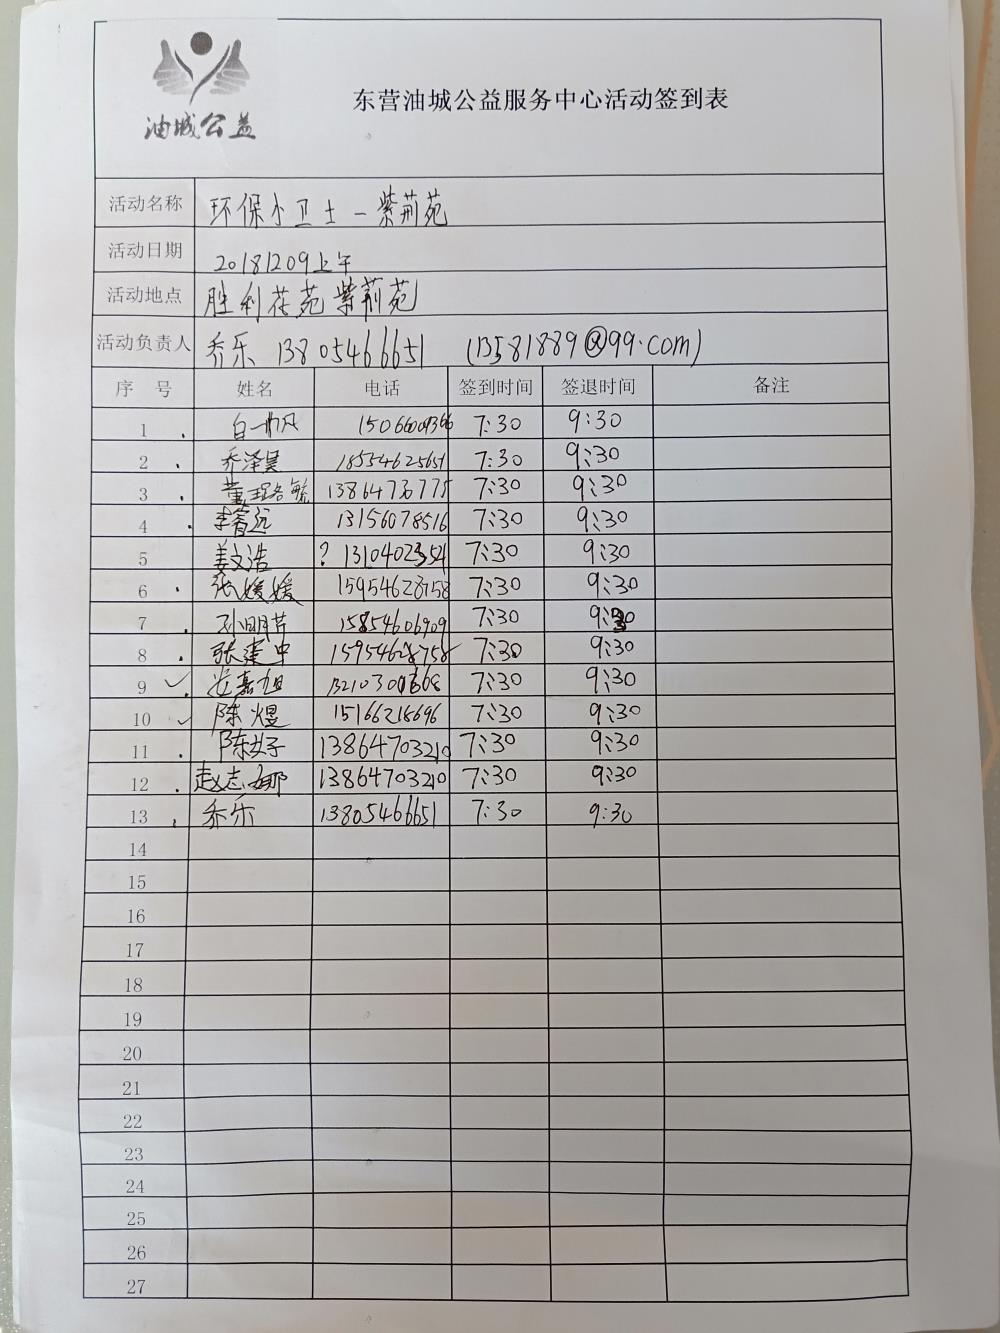 油城公益
东营油城公益服务中心活动签到表
活动名称 环保小卫士-紫荆苑
活动日期 20181209上午
活动地点 胜利花苑紫荆苑
活动负责人 乔乐 13805466651 (13581889@99.com)
序 号 姓名 电话 签到时间 签退时间 备注
1 白一帆 7:30 9:30
2 乔泽昊 18554625651 7:30 9:30
3 董珺毓 7:30 9:30
4 李 远 13156078516 7:30 9:30
5 姜文浩 ? 7:30 9:30
6 张媛媛 15954628758 7:30 9:30
7 孙明芹 15854606909 7:30 9:30
8 张建中 15954628758 7:30 9:30
9 嘉旭 7:30 9:30
10 陈煜 15166218696 7:30 9:30
11 陈好 13864703210 7:30 9:30
12 赵志娜 13864703210 7:30 9:30
13 乔乐 13805466651 7:30 9:30
14
15
16
17
18
19
20
21
22
23
24
25
26
27